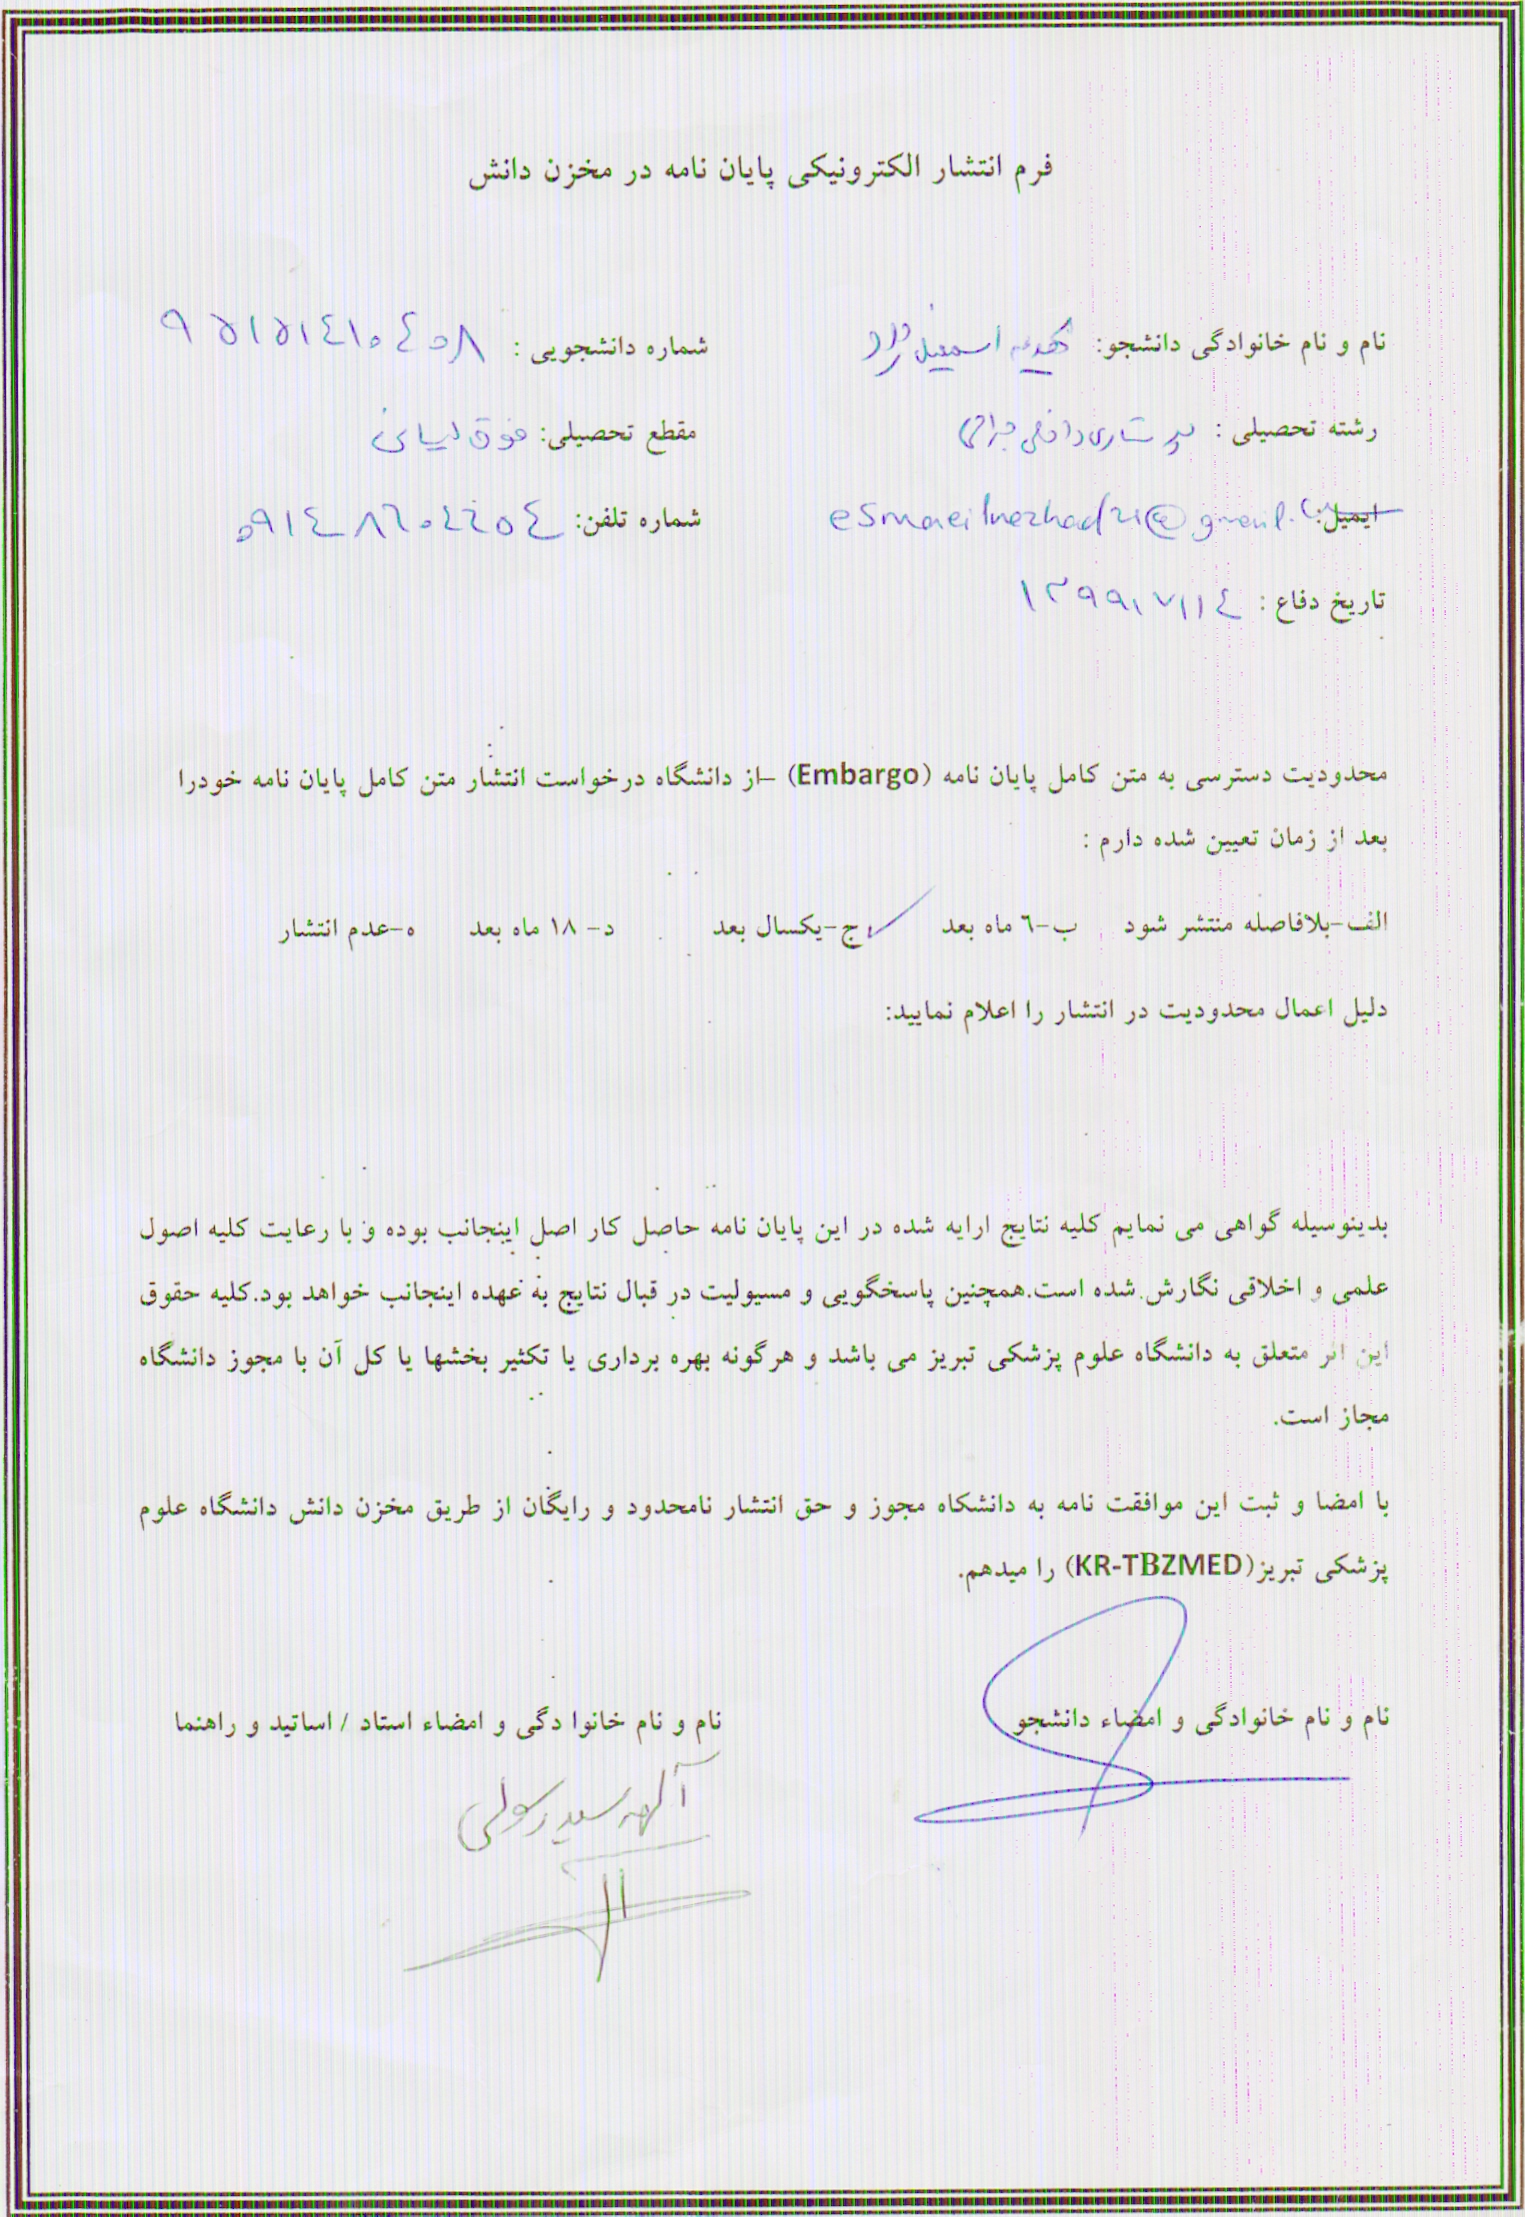 فرم انتشار الکترونیکی پایان نامه در مخزن دانش
نام و نام خانوادگی دانشجو: اسمعیل نژاد شماره دانشجویی : ۹۵۱۵۱٤۱۰٤۰۸
رشته تحصیلی : پرستاری داخلی جراحی مقطع تحصیلی: فوق لیسانس
ایمیل: esmaeilnezhad21@gmail.com شماره تلفن:
تاریخ دفاع : ۱۳۹۹/۷/۱٤
محدودیت دسترسی به متن کامل پایان نامه (Embargo) –از دانشگاه درخواست انتشار متن کامل پایان نامه خودرا
بعد از زمان تعیین شده دارم :
الف-بلافاصله منتشر شود ب-٦ ماه بعد ج-یکسال بعد د- ۱۸ ماه بعد ه-عدم انتشار
دلیل اعمال محدودیت در انتشار را اعلام نمایید:
بدینوسیله گواهی می نمایم کلیه نتایج ارایه شده در این پایان نامه حاصل کار اصل اینجانب بوده و با رعایت کلیه اصول
علمی و اخلاقی نگارش شده است.همچنین پاسخگویی و مسیولیت در قبال نتایج به عهده اینجانب خواهد بود.کلیه حقوق
این اثر متعلق به دانشگاه علوم پزشکی تبریز می باشد و هرگونه بهره برداری یا تکثیر بخشها یا کل آن با مجوز دانشگاه
مجاز است.
با امضا و ثبت این موافقت نامه به دانشکاه مجوز و حق انتشار نامحدود و رایگان از طریق مخزن دانش دانشگاه علوم
پزشکی تبریز(KR-TBZMED) را میدهم.
نام و نام خانوادگی و امضاء دانشجو نام و نام خانوا دگی و امضاء استاد / اساتید و راهنما